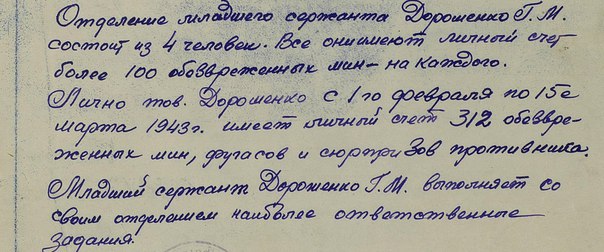 Отделение младшего сержанта Дорошенко Г.М.
состоит из 4 человек. Все они имеют личный счет
более 100 обезвреженных мин – на каждого.
Лично тов. Дорошенко с 1го февраля по 15е
марта 1943г. имеет личный счет 312 обезвре-
женных мин, фугасов и сюрпризов противника.
Младший сержант Дорошенко Г.М. выполняет со
своим отделением наиболее ответственные
задания.